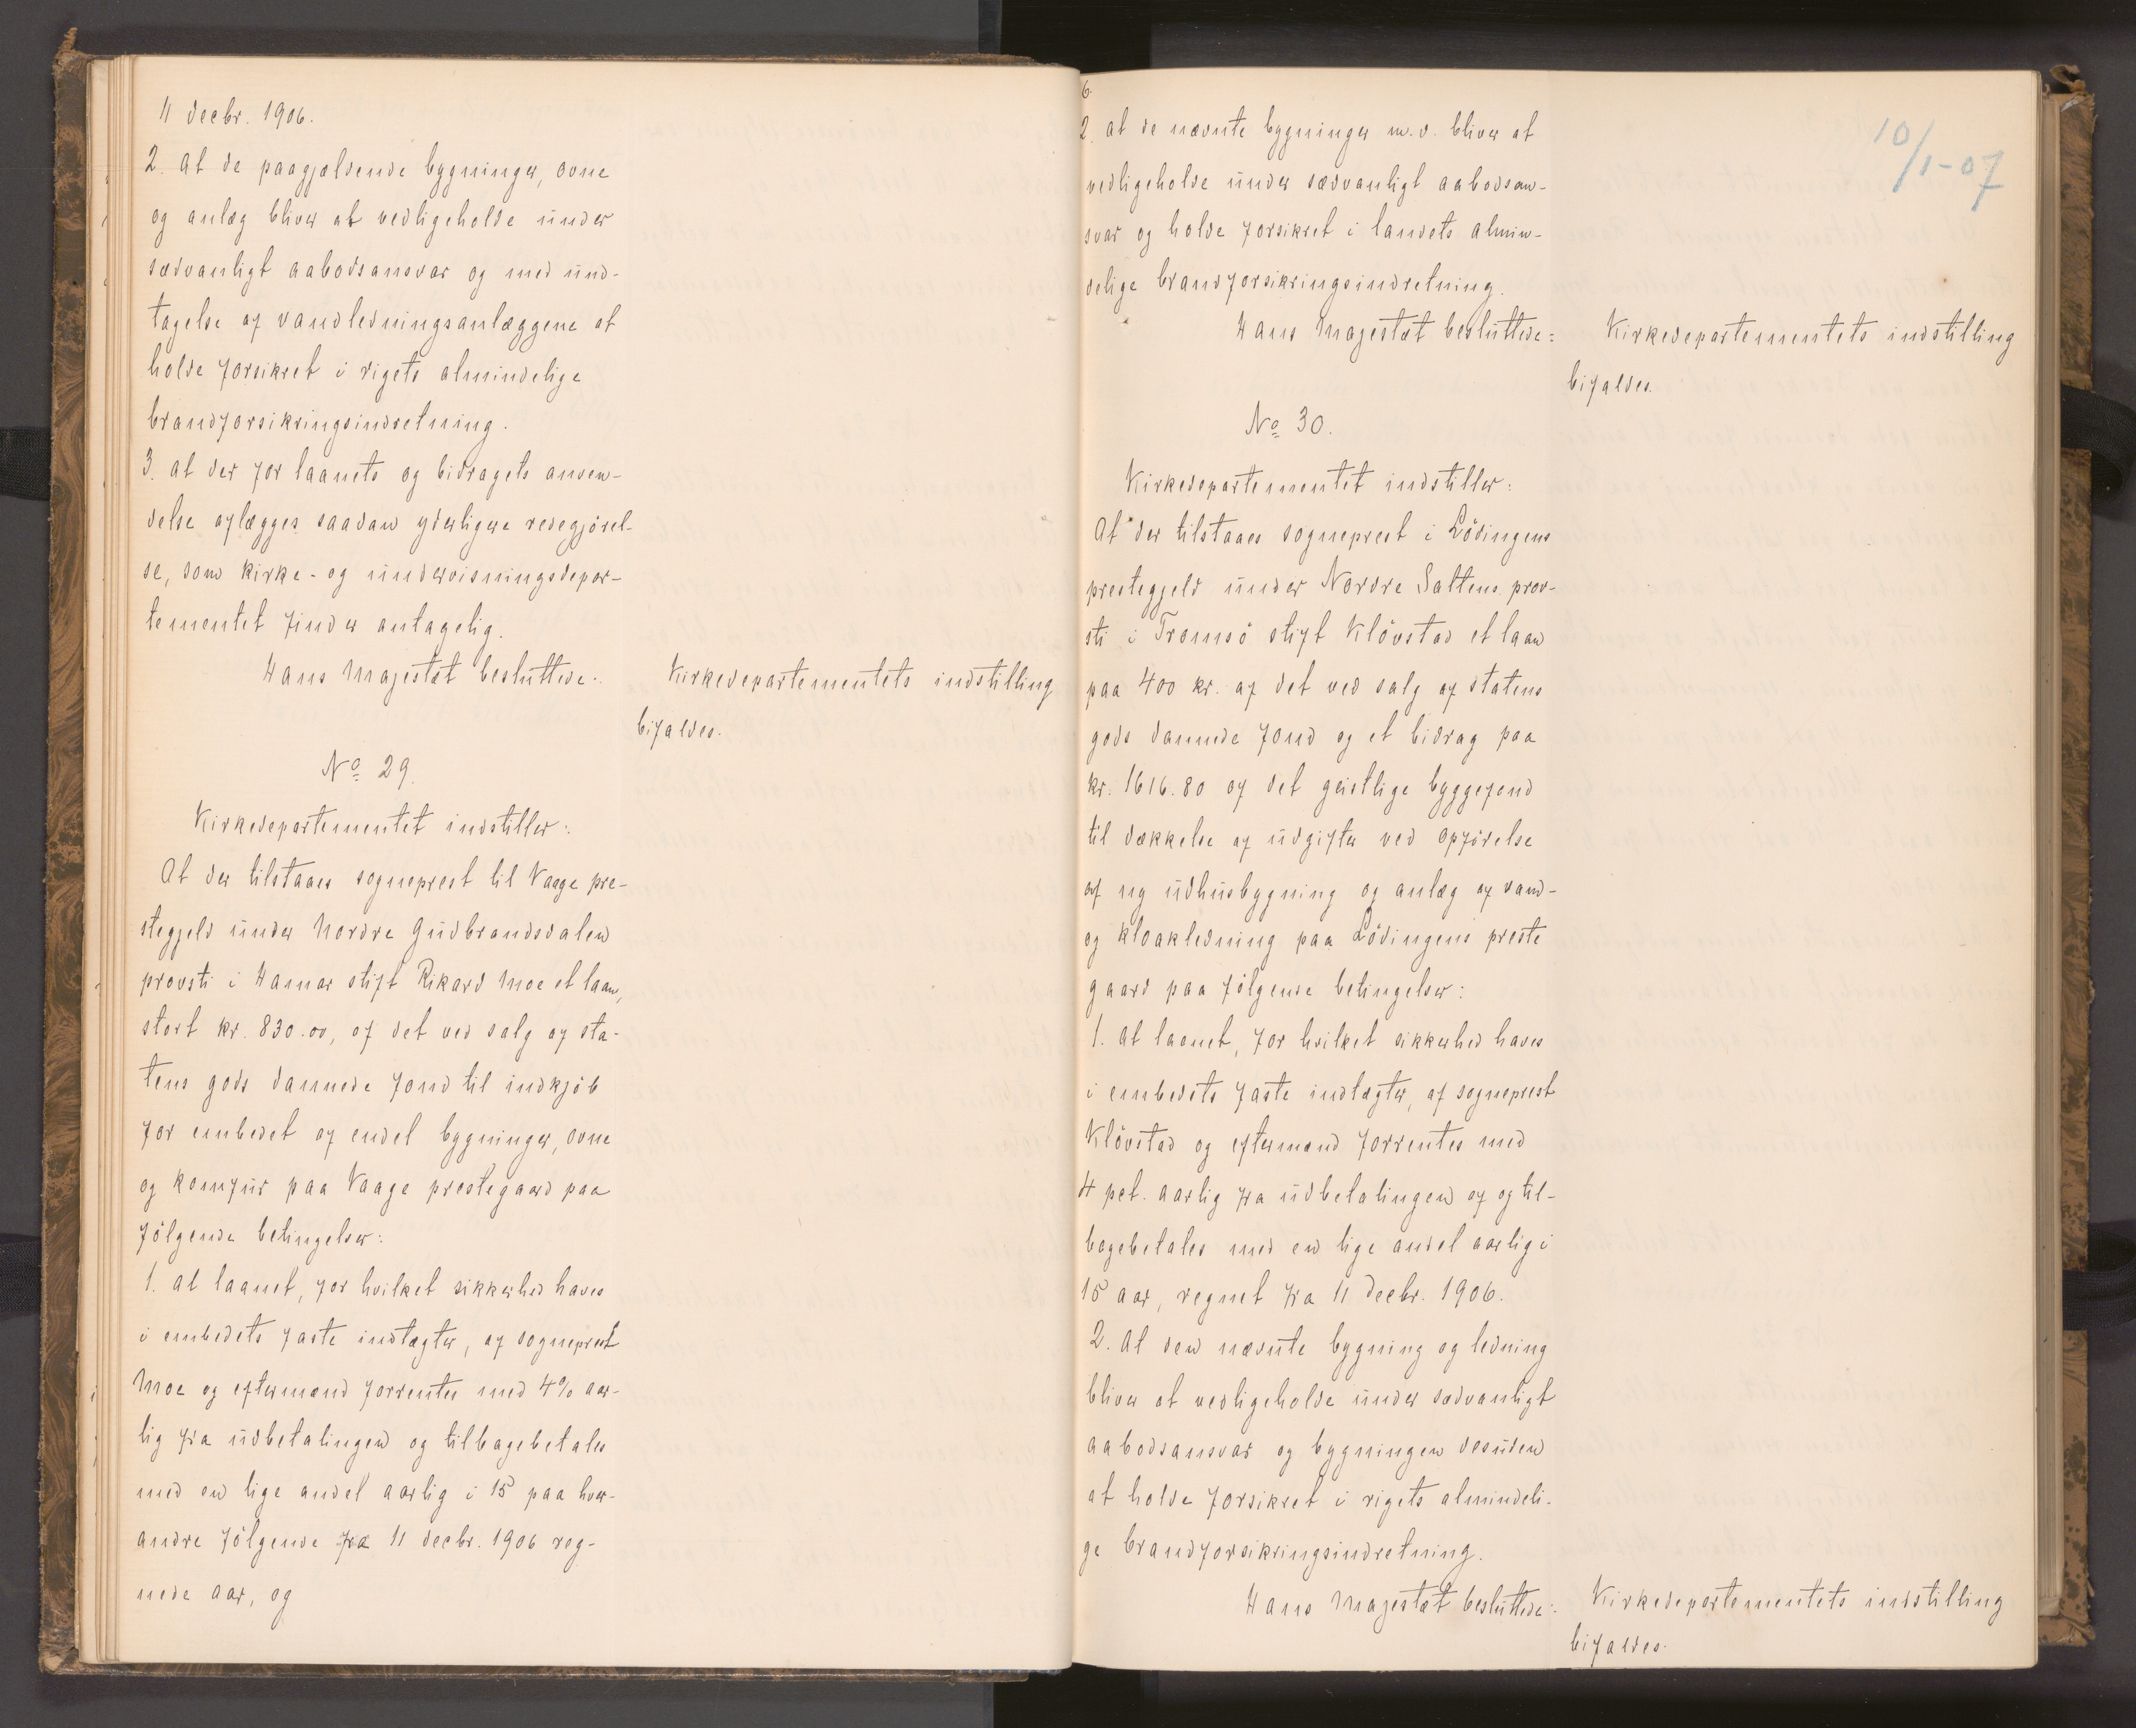 11 decbr. 1906.
2. at de paagjældende bygninger, ovne
og anlæg bliver at vedligeholde under
sædvanligt aabodsansvar og med und-
tagelse af vandledningsanlæggene at
holde forsikret i rigets almindelige
brandforsikringsindretning.
3. at der for laanets og bidragets anven-
delse aflægges saadan yderligere redegjørel-
se, som kirke- og undervisningsdepar-
tementet finder antagelig.
Hans Majestæt besluttede:
Kirkedepartementets indstilling
bifaldes.
No 29.
Kirkedepartementet indstiller:
At der tilstaaes sogneprest til Vaage pre-
stegjeld under Nordre Gudbrandsdalen
provsti i Hamar stift Rikard Moe et laan,
stort kr. 830.00, af det ved salg af sta-
tens gods dannede fond til indkjøb
for embedet af endel bygninger, ovne
og komfur paa Vaage prestegaard paa
følgende betingelser:
1. at laanet, for hvilket sikkerhed haves
i embedets faste indtægter, af sogneprest
Moe og eftermænd forrentes med 4% aar-
lig fra udbetalingen og tilbagebetales
med en lige andel aarlig i 15 paa hver-
andre følgende fra 11 decbr. 1906 reg-
nede aar, og
6.
2. at de nævnte bygninger m.v. bliver at
vedligeholde under sædvanligt aabodsan-
svar og holde forsikret i landets almin-
delige brandforsikringsindretning.
Hans Majestæt besluttede:
Kirkedepartementets indstilling
bifaldes.
10/1-07
No 30.
Kirkedepartementet indstiller:
At der tilstaaes sogneprest i Lødingens
prestegjeld under Nordre Saltens prov-
sti i Tromsø stift Kløvstad et laan
paa 400 kr. af det ved salg af statens
gods dannede fond og et bidrag paa
kr. 1616.80 af det geistlige byggefond
til dækkelse af udgifter ved opførelse
af ny udhusbygning og anlæg af vand-
og kloakledning paa Lødingens preste
gaard paa følgende betingelser:
1. At laanet, for hvilket sikkerhed haves
i embedets faste indtægter, af sogneprest
Kløvstad og eftermænd forrentes med
4 pct. aarlig fra udbetalingen af og til-
bagebetales med en lige andel aarlig i
15 aar, regnet fra 11 decbr. 1906.
2. At den nævnte bygning og ledning
bliver at vedligeholde under sædvanligt
aabodsansvar og bygningen desuden
at holde forsikret i rigets almindeli-
ge brandforsikringsindretning.
Hans Majestæt besluttede:
Kirkedepartementets indstilling
bifaldes.